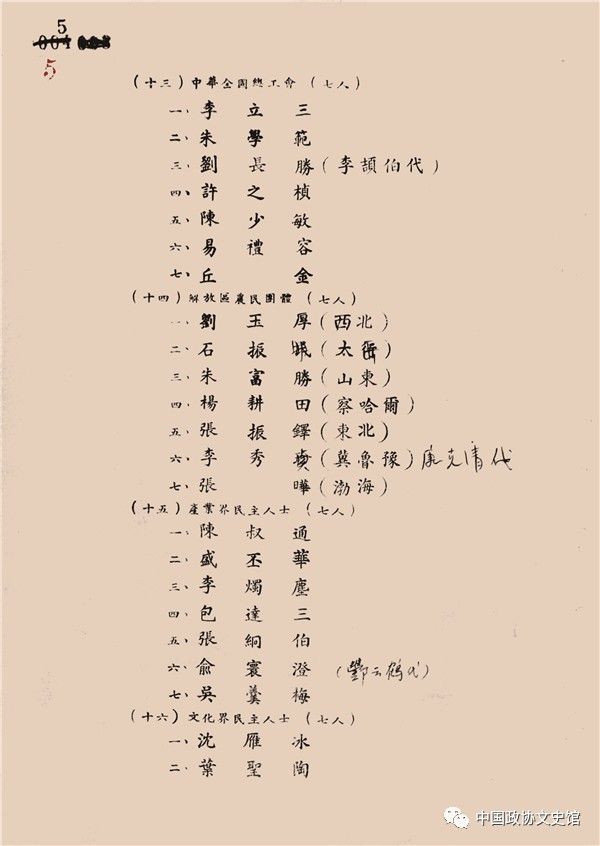 5
001
5
(十三)中華全國總工會(七人)
一、李立三
二、朱學範
三、劉長勝(李頡伯代)
四、許之楨
五、陳少敏
六、易禮容
七、丘金
(十四)解放區農民團體(七人)
一、劉玉厚(西北)
二、石振(太)
三、朱富勝(山東)
四、楊耕田(察哈爾)
五、張振鐸(東北)
六、李秀貞(冀魯豫)康克清代
七、張曄(渤海)
(十五)產業界民主人士(七人)
一、陳叔通
二、盛丕華
三、李燭塵
四、包達三
五、張絅伯
六、俞寰澄(酆云鶴代)
七、吳羹梅
(十六)文化界民主人士(七人)
一、沈雁冰
二、葉聖陶
中国政协文史馆